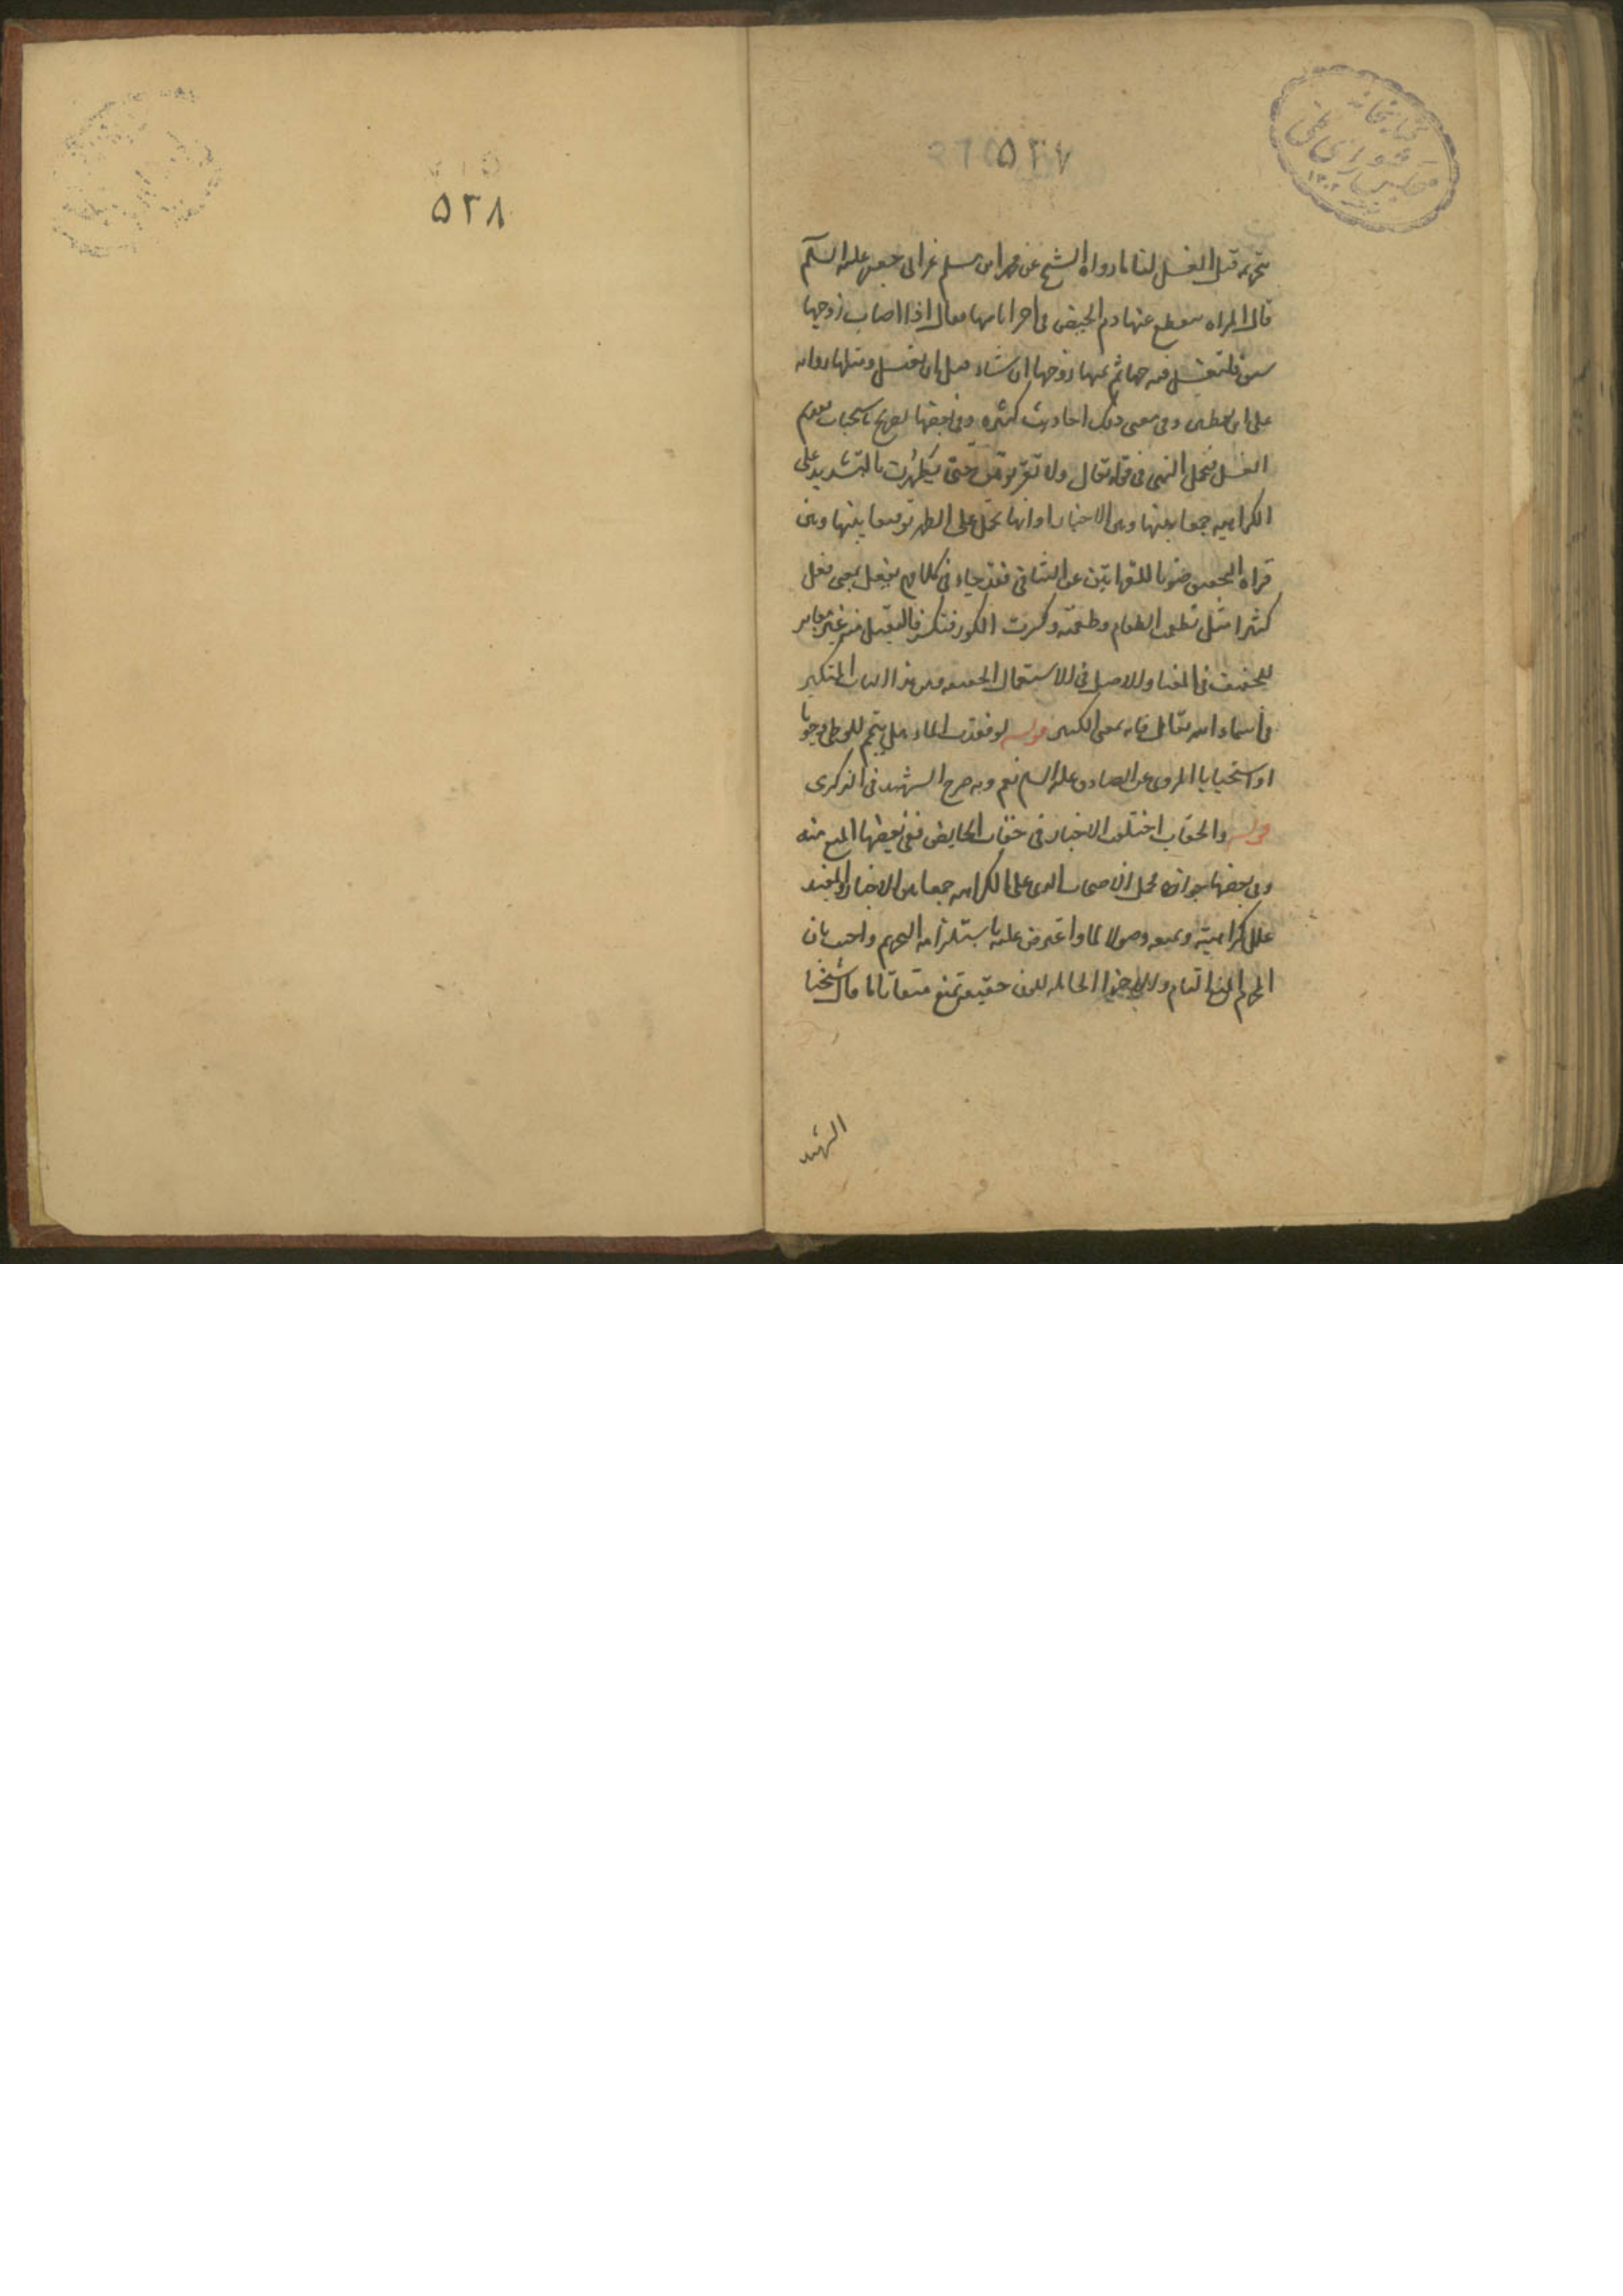 ۵۲۷
تحريمه قبل الغسل لنا ما رواه الشيخ عن محمد ابن مسلم عن ابى جعفر عليه السلم
قال المراه ينقطع عنها دم الحيض فى اخر ايامها فقال اذا اصاب زوجها
شبق فلتغسل فرجها ثم يمسها زوجها ان شاء قبل ان يغتسل ومثلها روايه
على ابن يقطين وفى معنى ذلك احاديث كثيره وفى بعضها تصريح باستحباب تقديم
الغسل فيحمل النهى فى قوله تعالى ولا تقربوهن حتى يطهرن بالتشديد على
الكراهيه جمعا بينها وبين الاخبار او انها تحمل على الطهر توفيقا بينها وبين
قراه التخفيف صونا للقرائتين عن التنافى فقد جاء فى كلامهم تفعل بمعنى فعل
كثيرا مثل تطعمت الطعام وطعمته وكسرت الكوز فتكسر فالتثقيل من غير مغاير
للتخفيف فى المعنا والاصل فى الاستعمال الحقيقه ومن هذا الباب المتكبر
فى اسماء الله تعالى فانه بمعنى الكبير قوله لو فقدت الماء هل يتيمم للوطى وجوبا
او استحبابا المروى عن الصادق عليه السلم نعم وبه صرح الشهيد فى الذكرى
قوله والخضاب اختلفت الاخبار فى خضاب الحايض ففى بعضها المنع منه
وفى بعضها جوازه فحمل الاصحاب النهى على الكراهه جمعا بين الاخبار والمفيد
علل كراهيته وبمنعه وصول الماء واعترض عليه باستلزامه التحريم واجيب بان
المحرم المنع التام والاجزا الحامله للون خفيفه تمنع منعا تاما قال شيخنا
الشهيد
۵۲۸